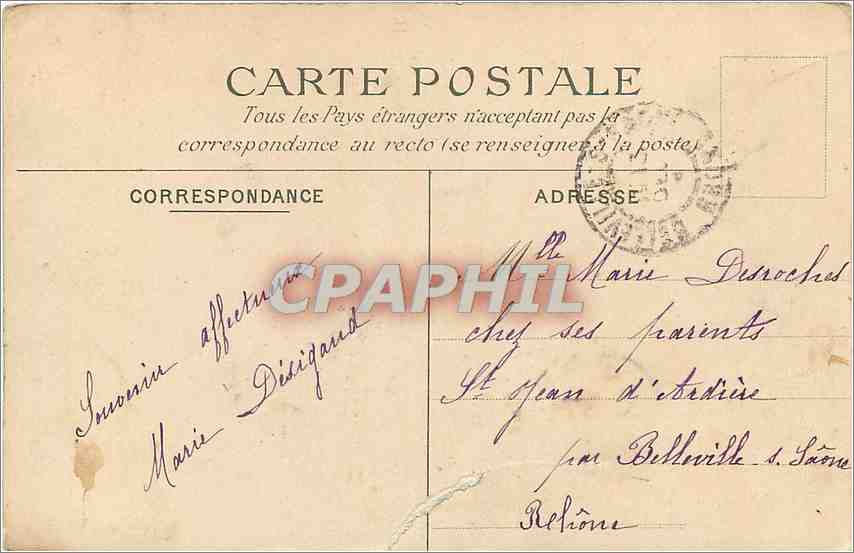 CARTE POSTALE
Tous les Pays étrangers n'acceptent pas la
correspondance au recto (se renseigner à la poste)
CORRESPONDANCE
ADRESSE
BELLEVILLE
CPAPHIL
Souvenir affectueux
Marie Désigaud
Mlle Marie Desroches
chez ses parents
St Jean d'Ardière
par Belleville s. Saône
Rhône